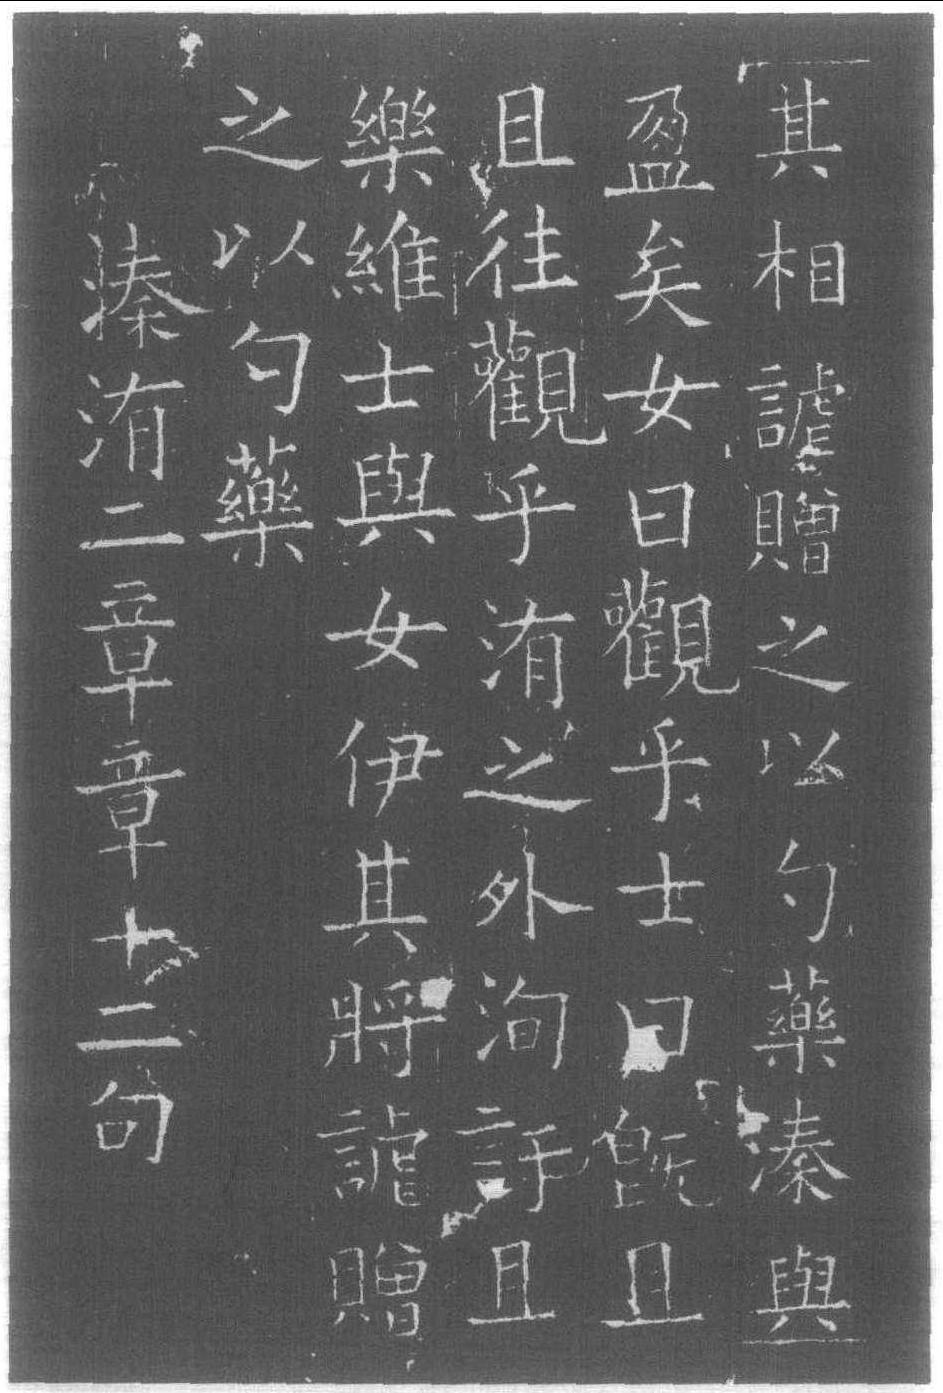 其相謔贈之以勺藥溱與
盈矣女曰觀乎士曰既且
且往觀乎洧之外洵訏且
樂維士與女伊其將謔贈
之以勺藥
溱洧二章章十二句